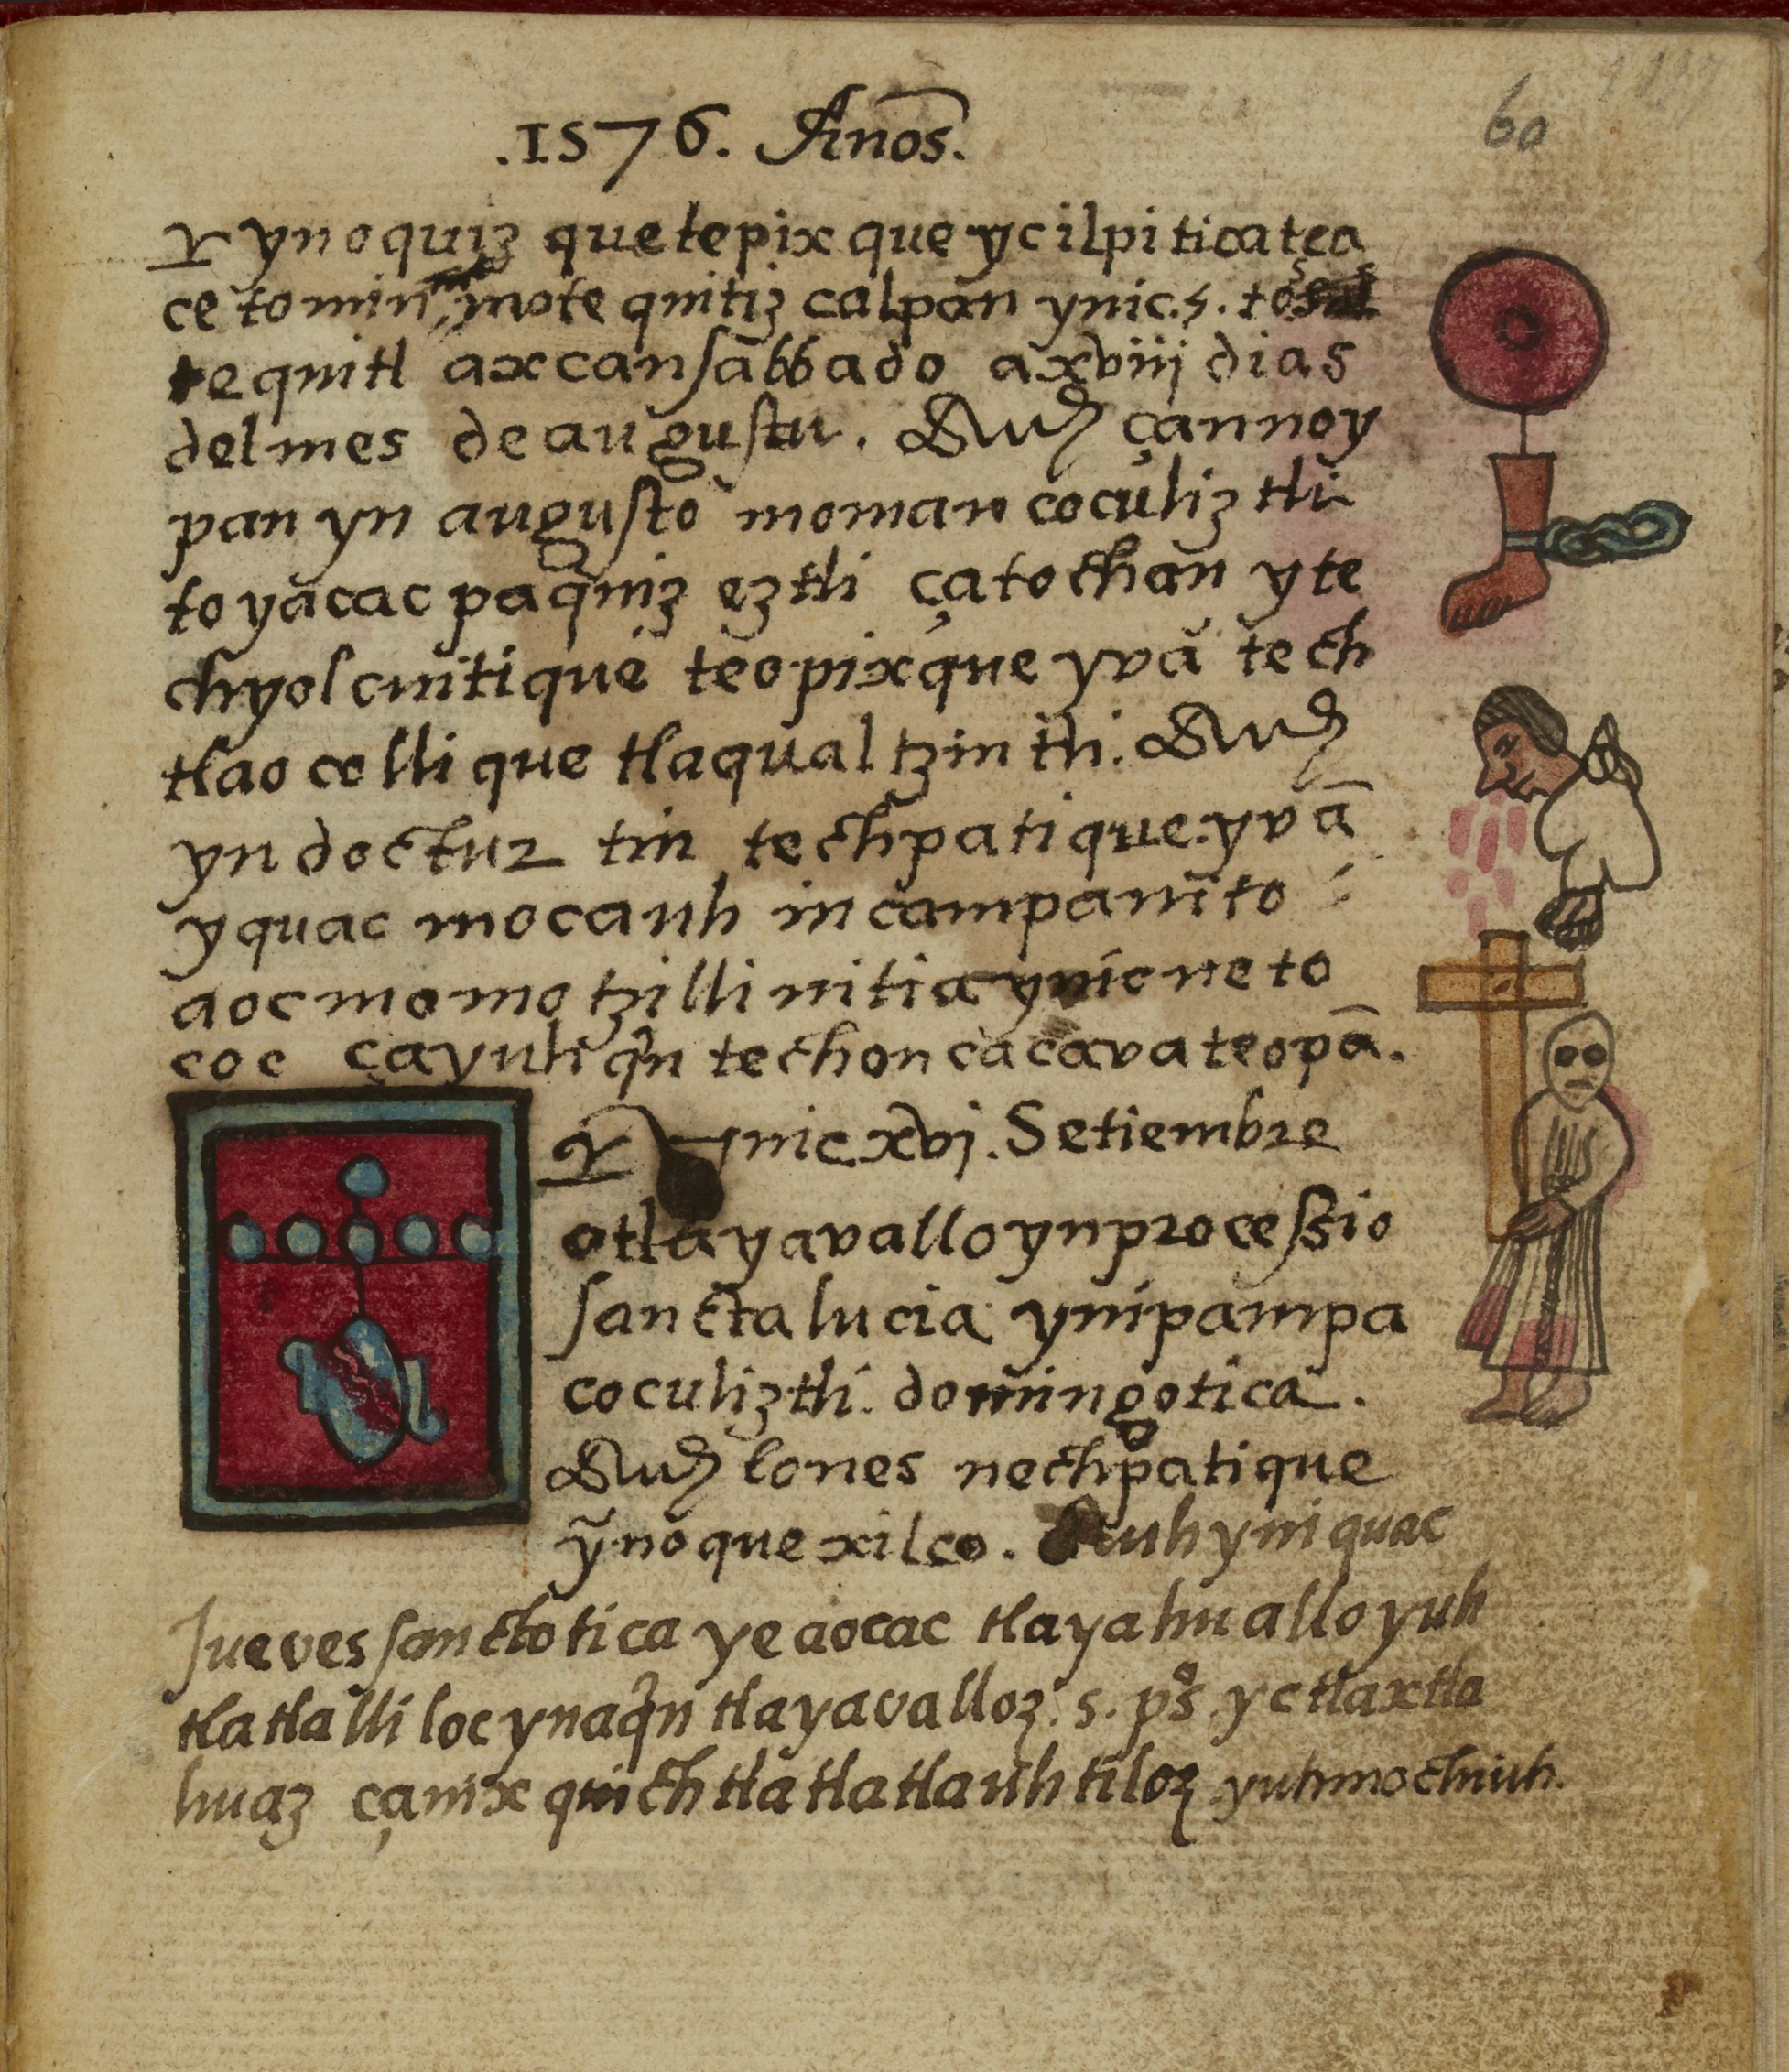 .1576. Años.
60
yn oquizque tepixque yc ilpiticatea
ce tomin motequitiz calpan ynic.s.
tequitl axcan sabbado a xviij dias
del mes de augustu. Auh çannoy
pan yn augusto moman coculiztli
toyacacpa quiz eztli ça tochan yte
chyolcuitique teopixque yvā tech
tlaocellique tlaqualtzintli. Auh
yn doctur tin techpatique. yvā
yquac mocauh in campanito
aocmo motzillinitia ynic neto
coc çayuh qn techoncacavateopā.
ynic. xvj. Setiembre
otlayavallo yn processio
sancta lucia ynipampa
coculiztli. domingotica.
Auh lones nechpatique
ỹnoquexilco. Auh yniquac
Jueves sanctotica ye aocac tlayahuallo yuh
tlatlalliloc ynaqn tlayavalloz. s. pos. yc tlaxtla
huaz çanixquich tlatlatlauhtiloz yuhmochiuh.